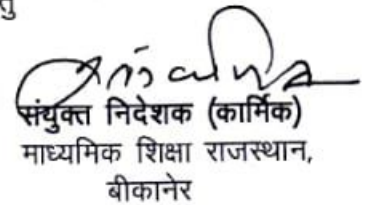 संयुक्त निदेशक (कार्मिक)
माध्यमिक शिक्षा राजस्थान,
बीकानेर